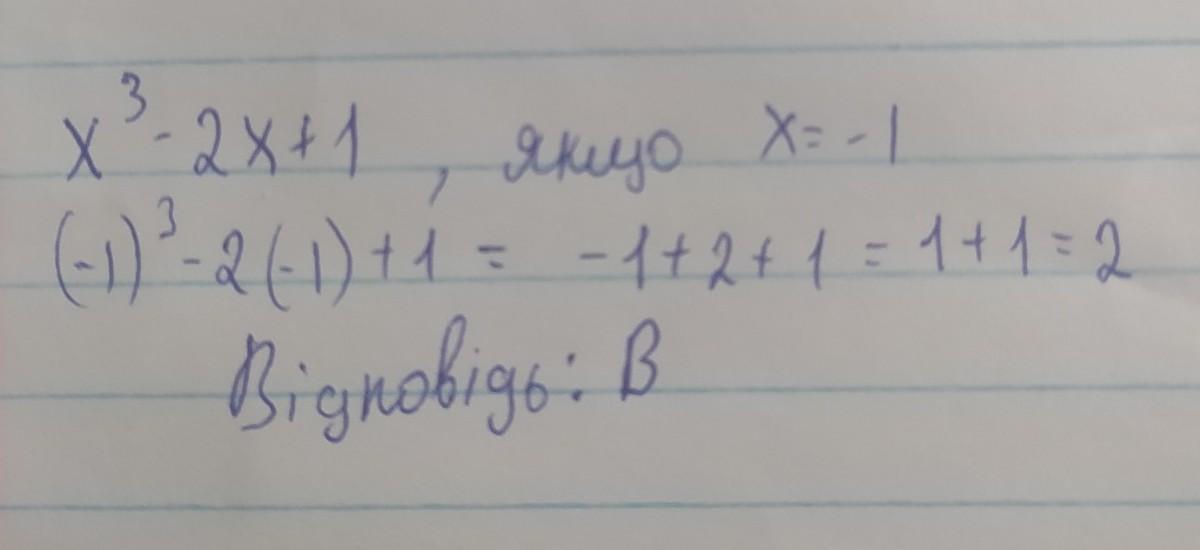 x³-2x+1, якщо x=-1
(-1)³-2(-1)+1= -1+2+1=1+1=2
Відповідь: В